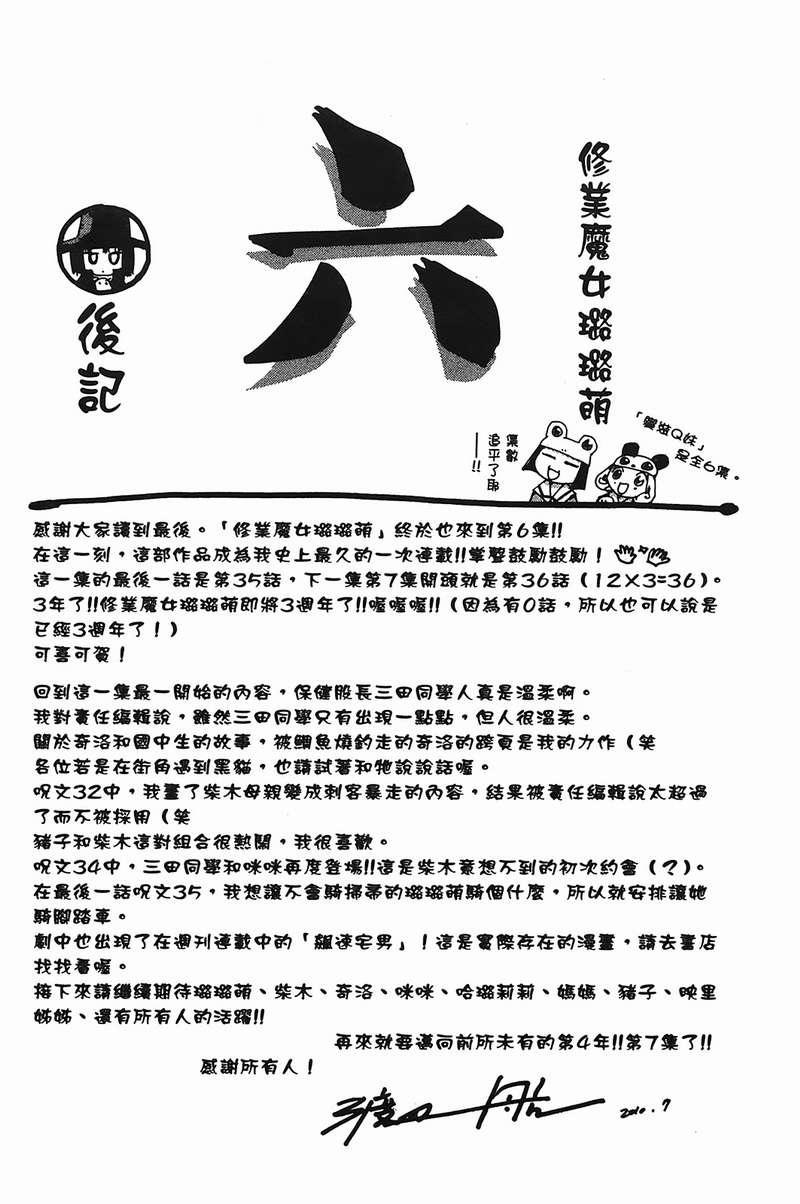 修業魔女璐璐萌
六
後記
「變裝Q妹」
是全6集。
集數
追平了耶
──!!
感謝大家讀到最後。「修業魔女璐璐萌」終於也來到第6集!!
在這一刻，這部作品成為我史上最久的一次連載!!掌聲鼓勵鼓勵！
這一集的最後一話是第35話，下一集第7集開頭就是第36話（12X3=36）。
3年了!!修業魔女璐璐萌即將3週年了!!喔喔喔!!（因為有0話，所以也可以說是
已經3週年了！）
可喜可賀！
回到這一集最一開始的內容，保健股長三田同學人真是溫柔啊。
我對責任編輯說，雖然三田同學只有出現一點點，但人很溫柔。
關於奇洛和國中生的故事，被鯛魚燒釣走的奇洛的跨頁是我的力作（笑
各位若是在街角遇到黑貓，也請試著和牠說說話喔。
呪文32中，我畫了柴木母親變成刺客暴走的內容，結果被責任編輯說太超過
了而不被採用（笑
豬子和柴木這對組合很熱鬧，我很喜歡。
呪文34中，三田同學和咪咪再度登場!!這是柴木意想不到的初次約會（？）。
在最後一話呪文35，我想讓不會騎掃帚的璐璐萌騎個什麼，所以就安排讓她
騎腳踏車。
劇中也出現了在週刊連載中的「飆速宅男」！這是實際存在的漫畫，請去書店
找找看喔。
接下來請繼續期待璐璐萌、柴木、奇洛、咪咪、哈璐莉莉、媽媽、豬子、映里
姊姊、還有所有人的活躍!!
再來就要邁向前所未有的第4年!!第7集了!!
感謝所有人！
2010.7